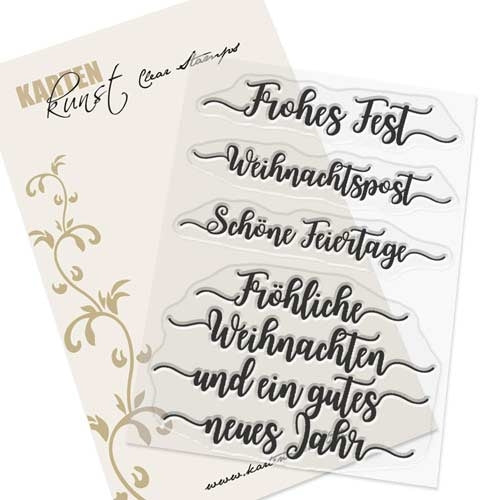 KARTEN
kunst
Clear Stamps
Frohes Fest
Weihnachtspost
Schöne Feiertage
Fröhliche
Weihnachten
und ein gutes
neues Jahr